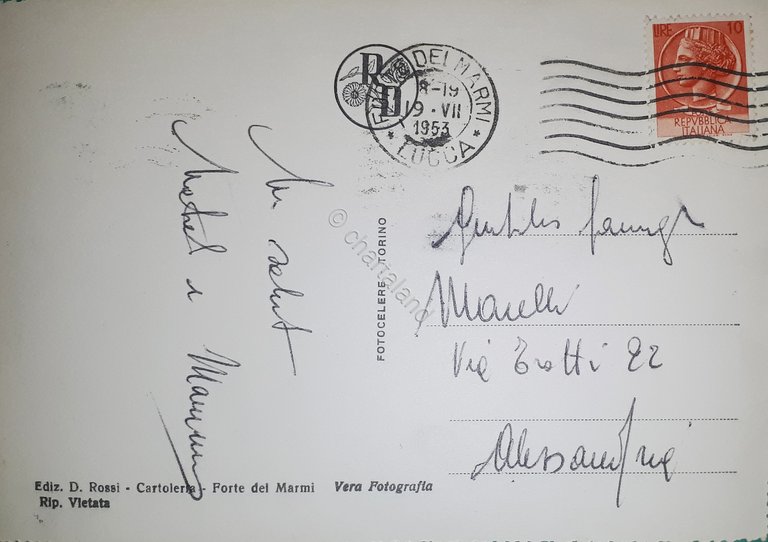 RD
FORTE DEI MARMI
18-19
19·VII
1953
* LUCCA *
LIRE 10
REPVBBLICA
ITALIANA
Un
Gentile
Morelli
Via Trotti 22
Alessandria
FOTOCELERE TORINO
© chartaland
Ediz. D. Rossi - Cartoleria - Forte dei Marmi Vera Fotografia
Rip. Vietata